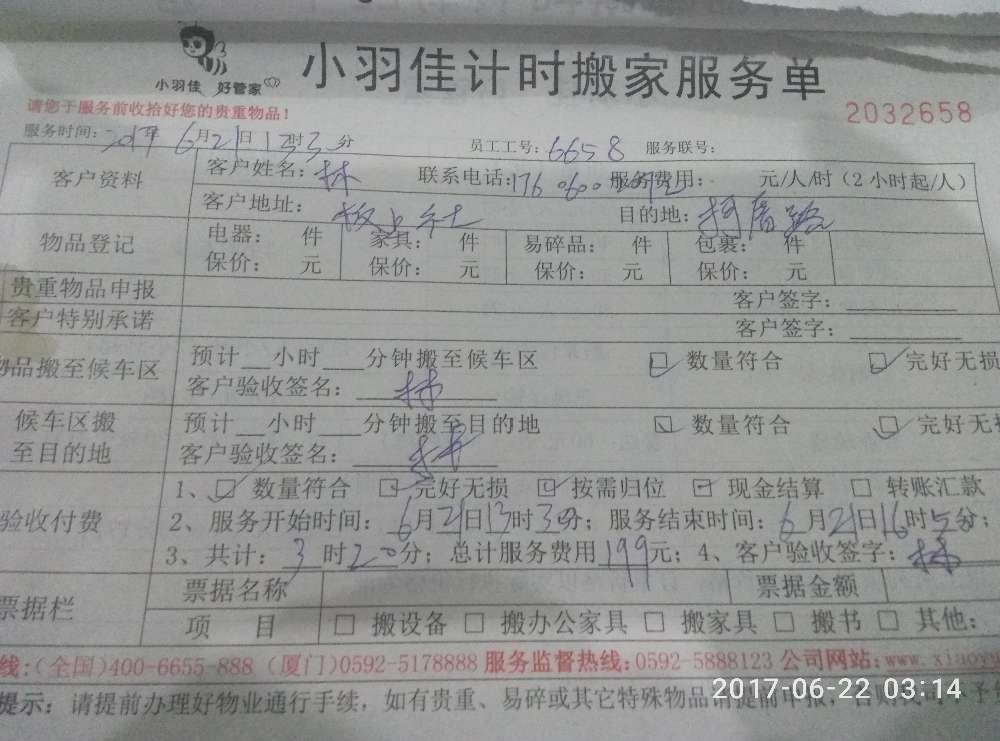 小羽佳 好管家
小羽佳计时搬家服务单
2032658
请您于服务前收拾好您的贵重物品!
服务时间: 6月21日 时3 分 员工工号: 6658 服务联号:
客户资料 客户姓名: 林 联系电话: 176 0600 服务费用: 元/人/时(2小时起/人)
客户地址: 板上社 目的地:
物品登记 电器: 件 家具: 件 易碎品: 件 包裹: 件
保价: 元 保价: 元 保价: 元 保价: 元
贵重物品申报 客户签字:
客户特别承诺 客户签字:
物品搬至候车区 预计__小时___分钟搬至候车区 数量符合 完好无损
客户验收签名: 林
候车区搬 预计__小时___分钟搬至目的地 数量符合 完好无损
至目的地 客户验收签名: 林
验收付费 1、 数量符合 完好无损 按需归位 现金结算 转账汇款
2、服务开始时间: 6月21日13时3分; 服务结束时间: 6月21日16时 分;
3、共计: 3时20分; 总计服务费用199元; 4、客户验收签字: 林
票据栏 票据名称 票据金额
项 目 搬设备 搬办公家具 搬家具 搬书 其他:
线:(全国)400-6655-888 (厦门)0592-5178888 服务监督热线:0592-5888123 公司网站:www.
提示: 请提前办理好物业通行手续, 如有贵重、易碎或其它特殊物品请提前申报,
2017-06-22 03:14